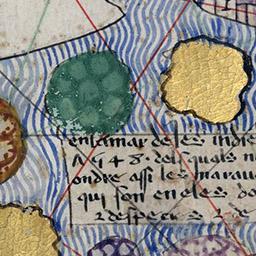 enlamar deles indie
7548. deis quals n
ondre assi les marau
qui son en eles do
2 despecies 2 e